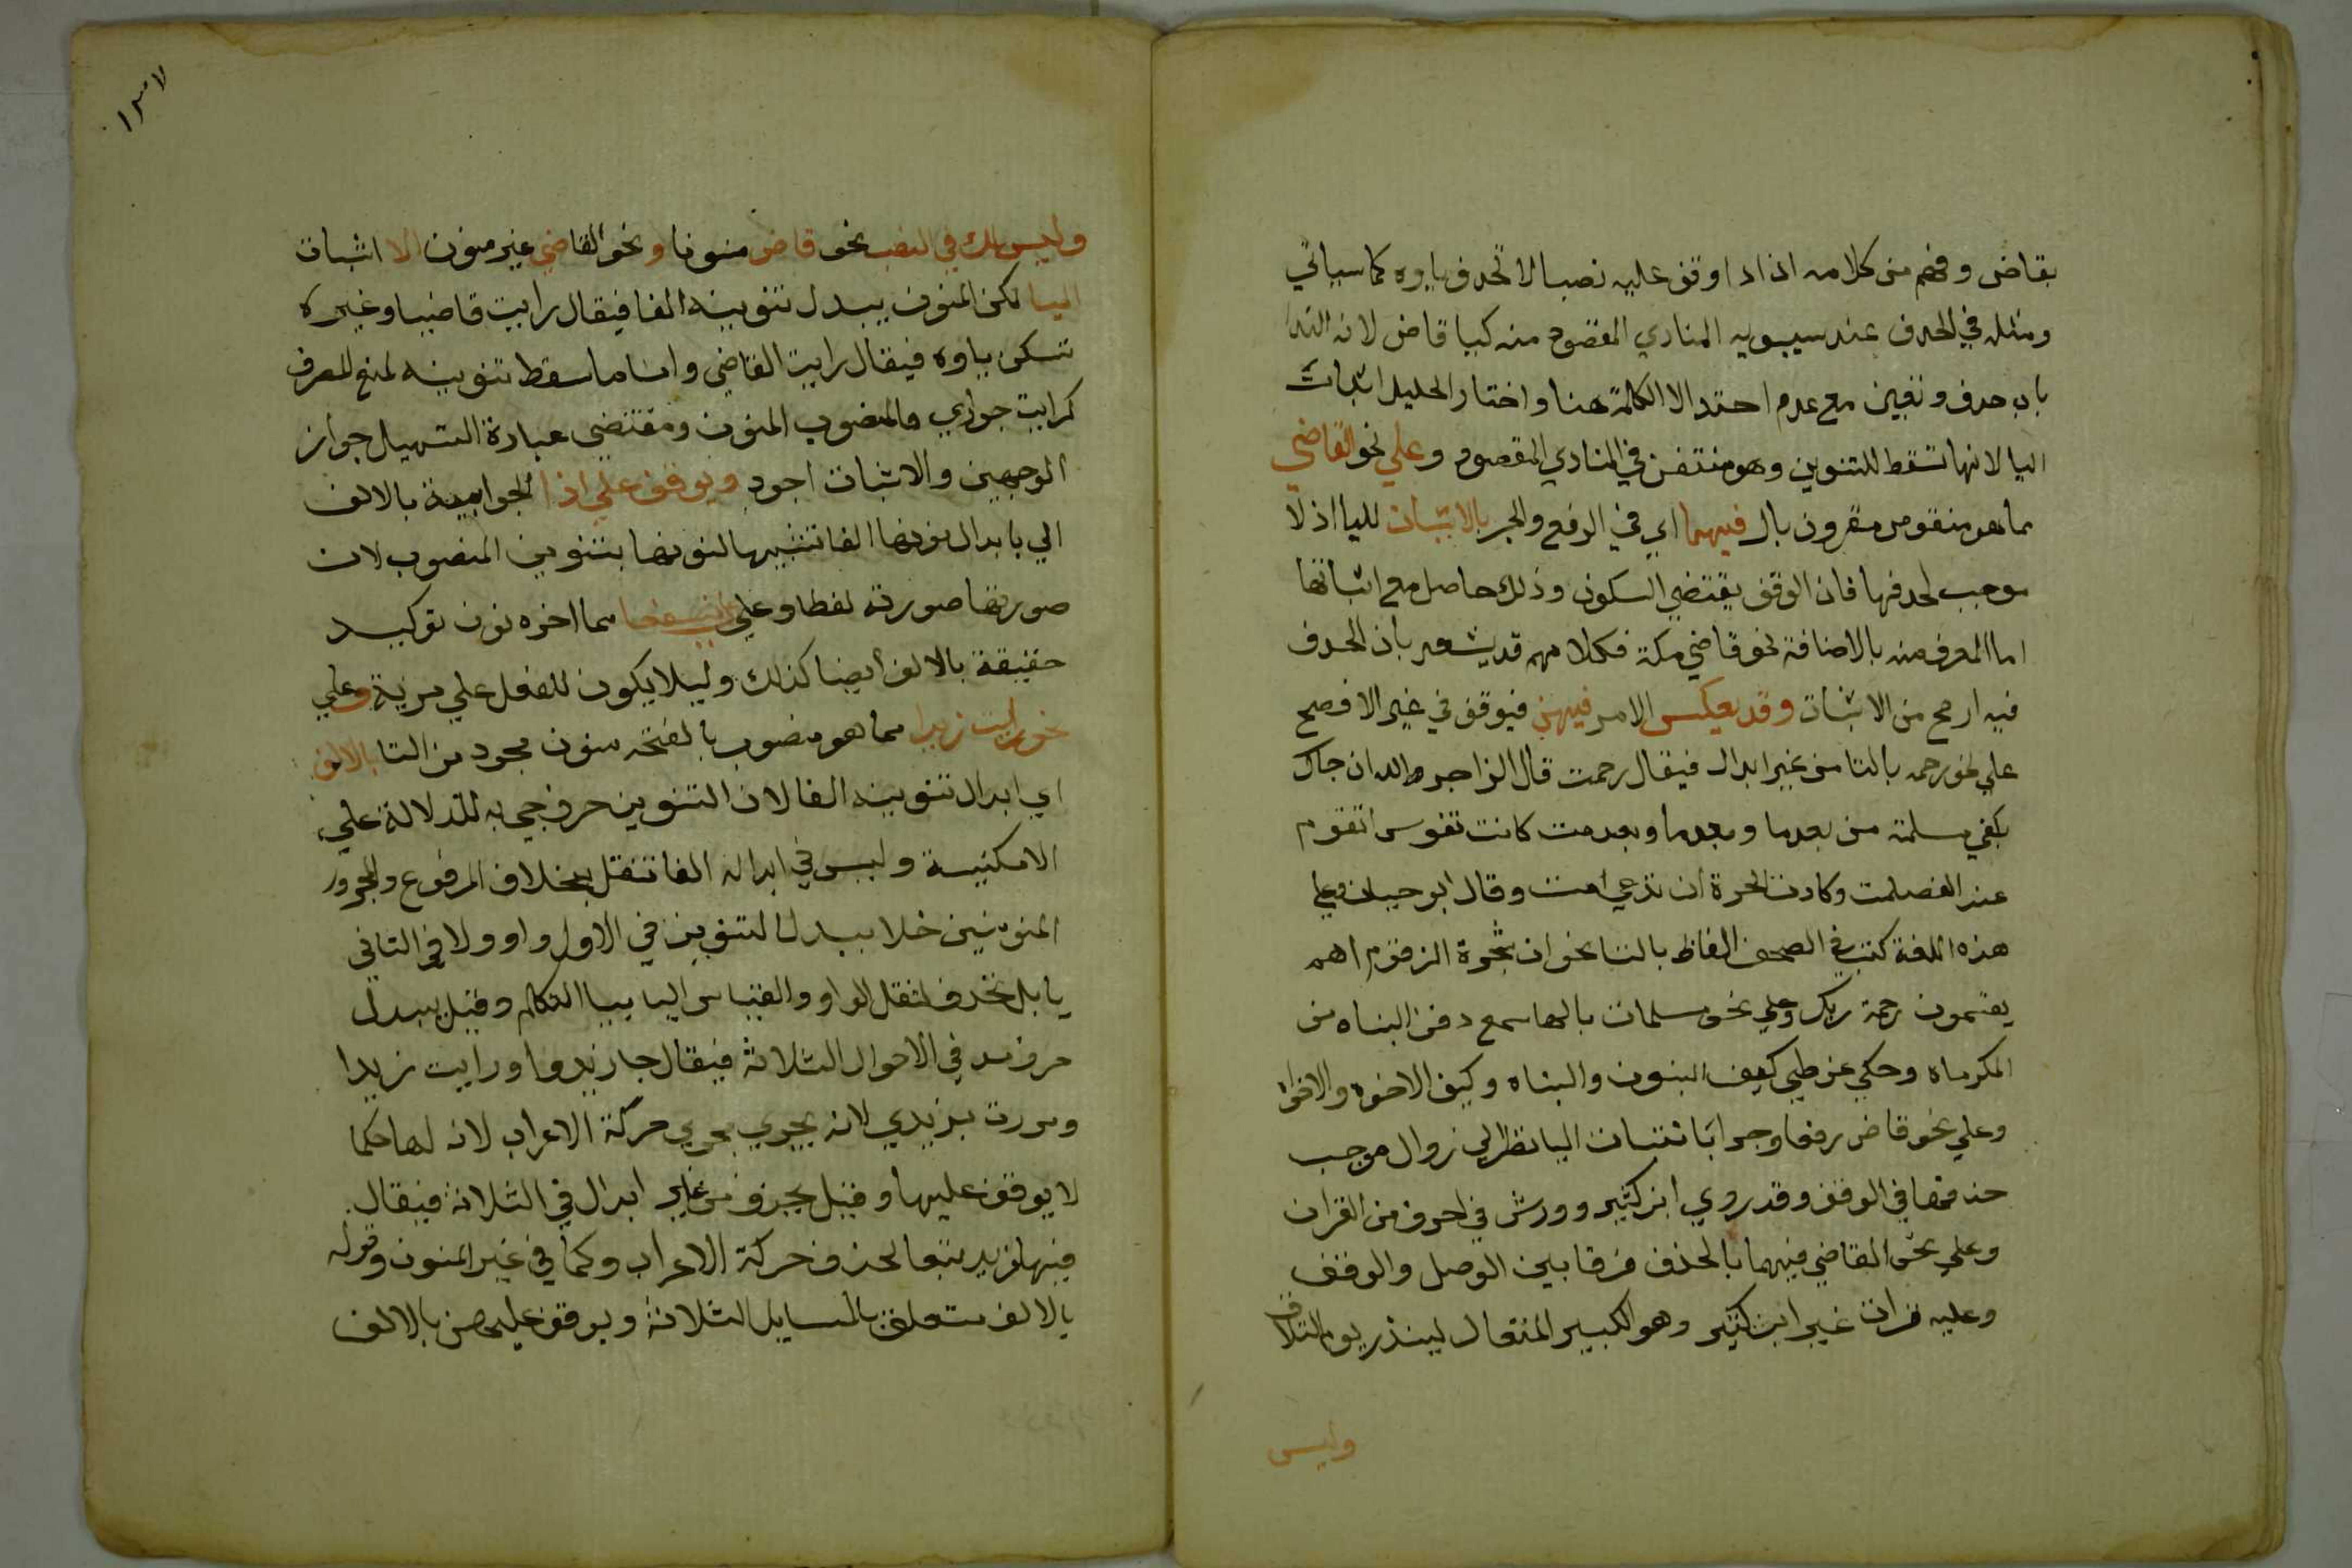 بقاض وفهم من كلامه انه اذا وقف عليه نصبا لا تحذف ياوه كما سياتي
ومثله في الحذف عند سيبويه المنادي المقصود منه كيا قاض لانه الندا
باب حذف وتغيير مع عدم اختلال الكلمة هنا واختار الخليل اثبات
اليا لانها تسقط للتنوين وهو منتف في المنادي المقصود وعلي نحو القاضي
مما هو منقوص مقرون بال فيهما اي في الرفع والجر بالاثبات لليا اذ لا
موجب لحذفها فان الوقف يقتضي السكون وذلك حاصل مع اثباتها
اما المعرف منه بالاضافة نحو قاضي مكة فكلامهم قد يشعر بان الحذف
فيه ارجح من الاثبات وقد يعكس الامر فيهن فيوقف في غير الافصح
علي نحو رحمه بالتا من غير ابدال فيقال رحمت قال الراجز والله انجاك
بكفي مسلمة من بعدما وبعدما وبعدمت كانت نفوس القوم
عند الغصلمت وكادت الحرة ان تدعي امت وقال ابو حيان وعلي
هذه اللغة كتب في المصحف الفاظ بالتا نحو ان شجرة الزقوم اهم
يقسمون رحمة ربك وعلي نحو مسلمات بالها سمع دفن البناه من
المكرماه وحكي عن طي كيف البنون والبناه وكيف الاخوه والاخواه
وعلي نحو قاض رفعا وجرا باثبات اليا نظرا الي زوال موجب
حذفها في الوقف وقد روي ابن كثير وورش في احرف من القران
وعلي نحو القاضي فيهما بالحذف فرقا بين الوصل والوقف
وعليه قرات غير ابن كثير وهو الكبير المتعال لينذر يوم التلاق
وليس
وليس لك في النصب نحو قاض منونا ونحو القاضي غير منون الا اثبات
اليا لكن المنون يبدل تنوينه الفا فيقال رايت قاضيا وغيره
تسكن ياوه فيقال رايت القاضي واما ما سقط تنوينه لمنع الصرف
كرايت جواري فالمنصوب المنون ومقتضي عبارة التسهيل جواز
الوجهين والاثبات اجود ويوقف علي اذا الجوابية بالالف
اي بابدال نونها الفا تشبيها لنونها بتنوين المنصوب لان
صورتها صورته لفظا وعلي لنسفعا مما اخره نون توكيد
خفيفة بالالف ايضا كذلك وليلا يكون للفعل علي مزية وعلي
نحو رايت زيدا مما هو منصوب بالفتحه منون مجرد من التا بالالف
اي ابدال تنوينه الفا لان التنوين حرف جي به للدلالة علي
الامكنية وليس في ابداله الفا تثقل بخلاف المرفوع والمجرور
المنونين فلا يبدل التنوين في الاول واو ولا في الثاني
يا بل تحذف لثقل الواو والتباس اليا بيا المتكلم وقيل يبدل
حرف مد في الاحوال الثلاثة فيقال جا زيدوا ورايت زيدا
ومررت بزيدي لانه يجري مجري حركة الاعراب لانه لها حكما
لا يوقف عليها وقيل يحذف من غير ابدال في الثلاثة فيقال
فيها زيد تبعا لحذف حركة الاعراب وكما في غير المنون وقوله
بالالف متعلق بالمسايل الثلاثة ويوقف عليهن بالالف